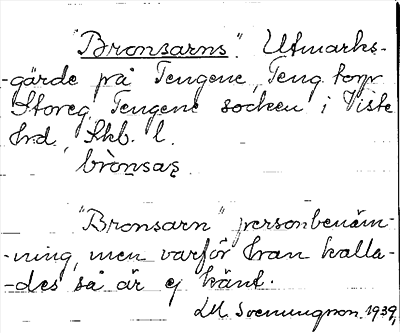 "Bronsarns". Utmarks-
-gärde på Tengene, Teng torp
Storeg. Tengene socken i Viste
hrd, Skb. l.
brònsaș
"Bronsarn" personbenäm-
-ning, men varför han kalla-
-des så är ej känt.
LM. Svenungson. 1939.